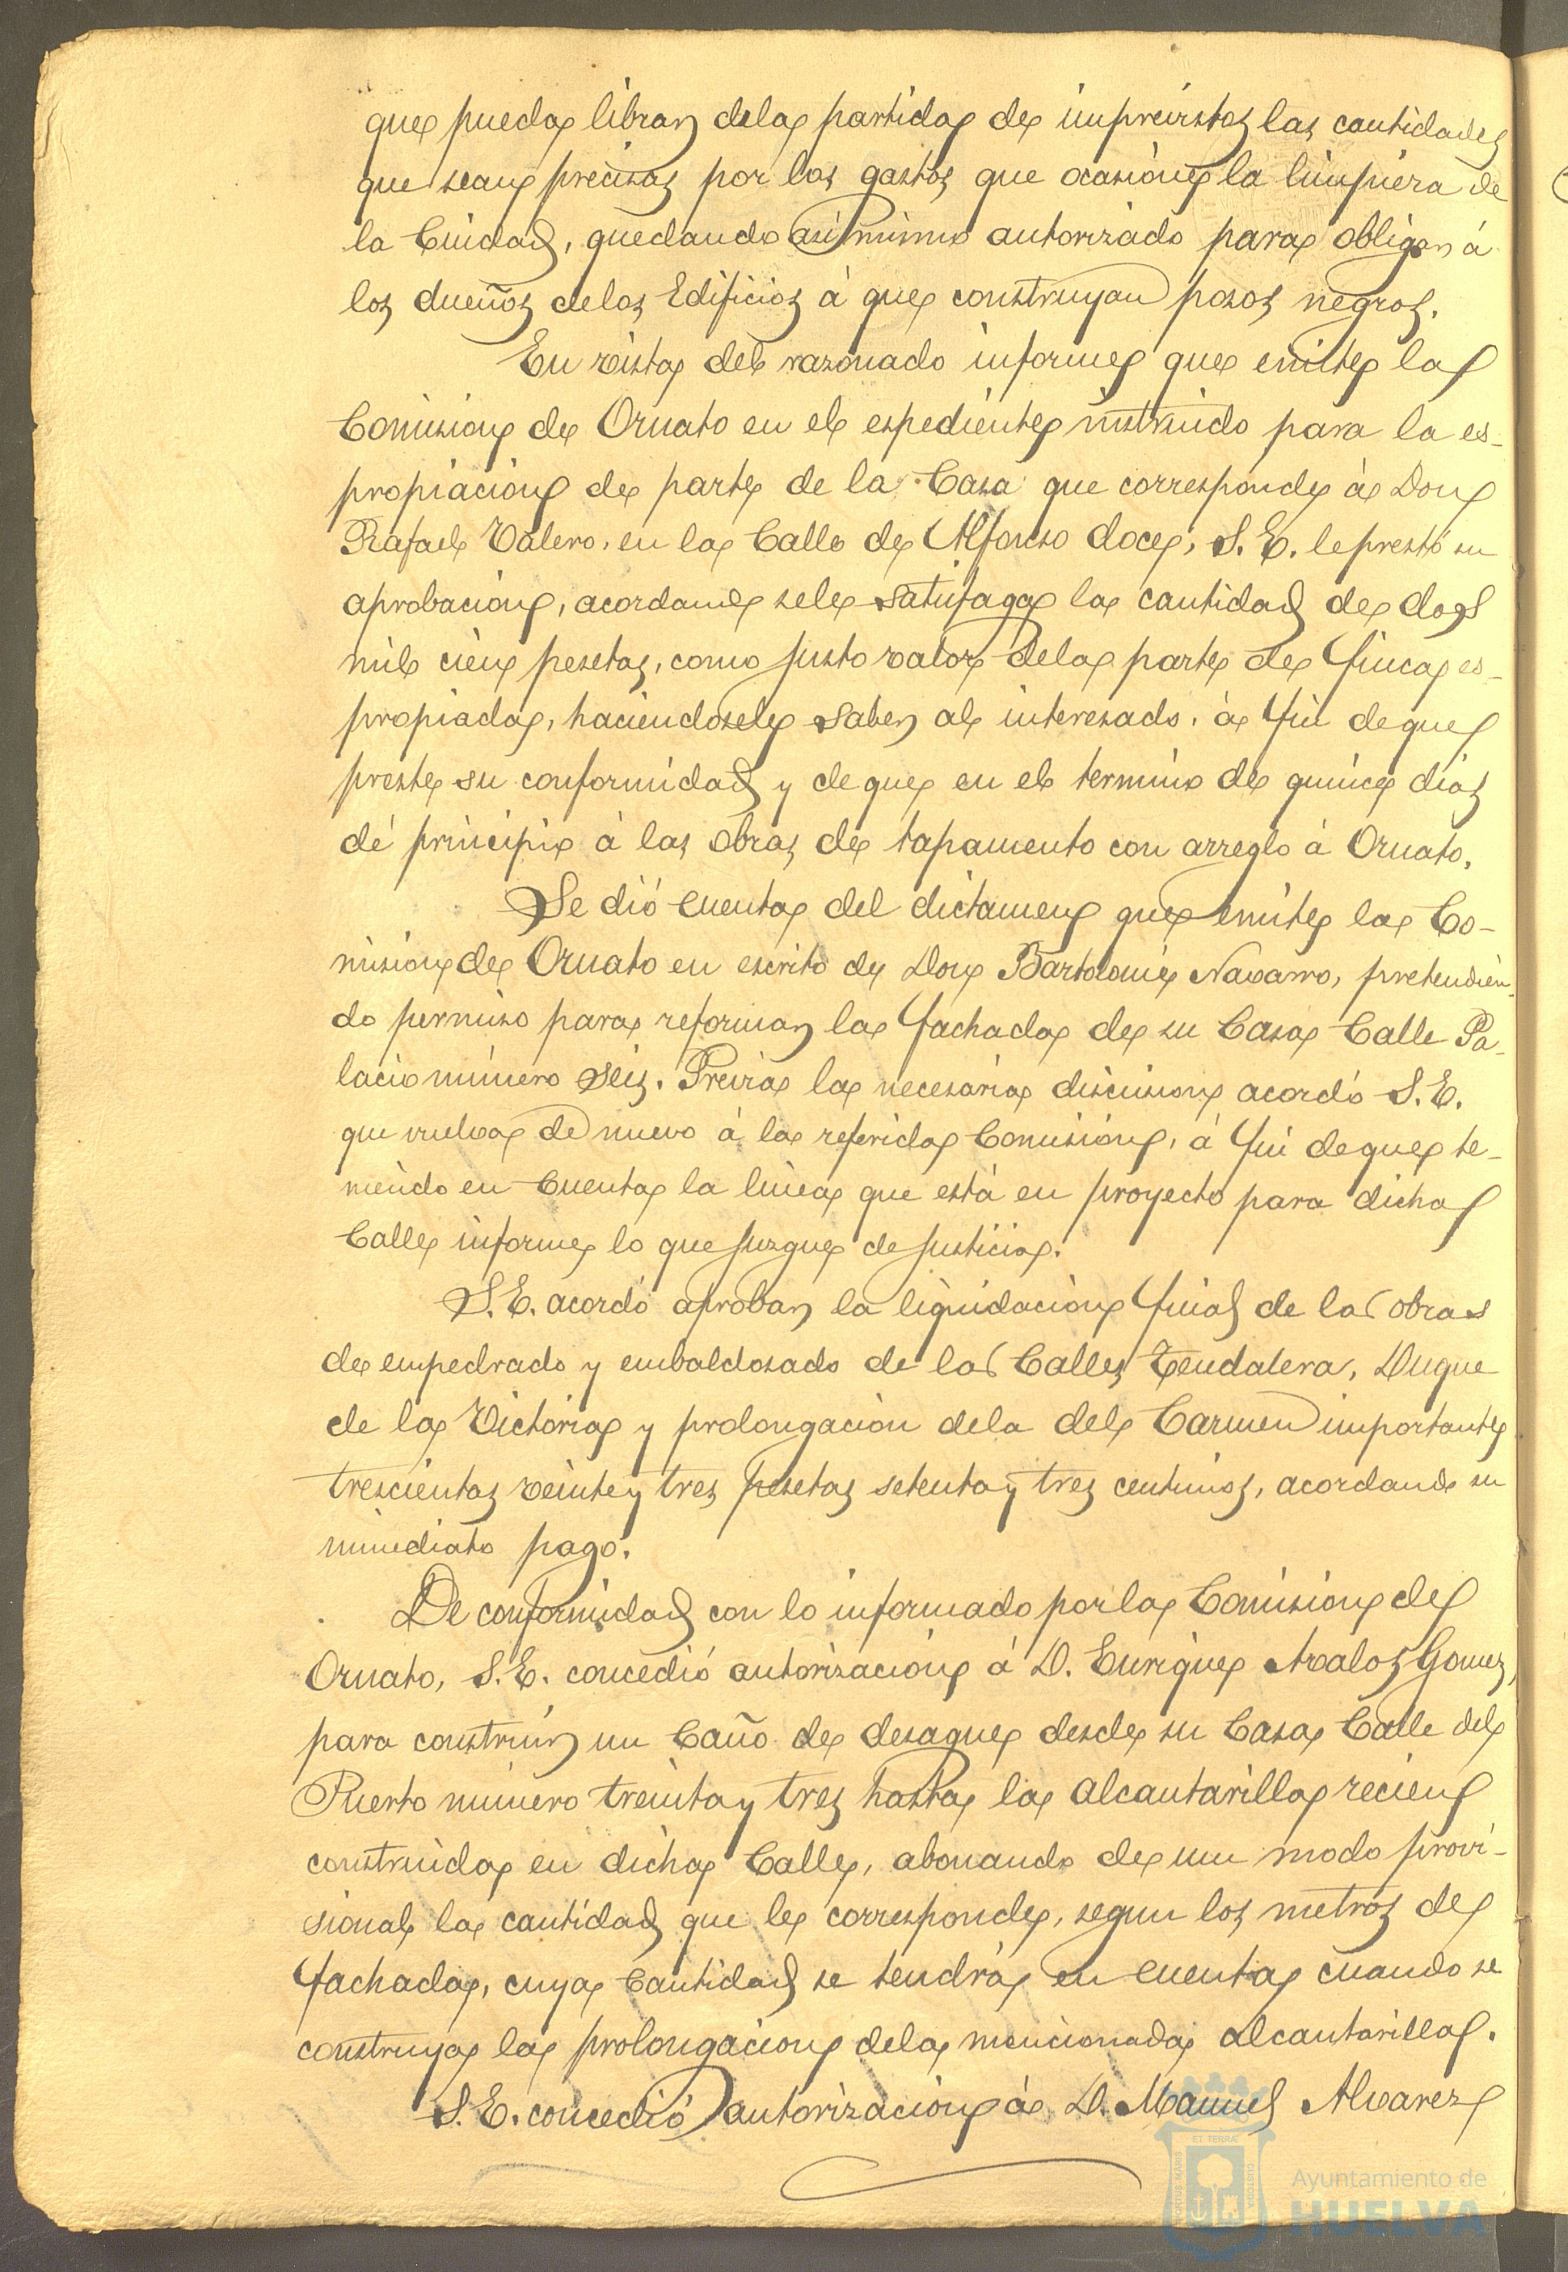 que pueda librar dela partida de imprevistos las cantidades
que sean precisas por los gastos que ocasione la limpieza de
la Ciudad, quedando asi mismo autorizado para obligar á
los dueños delos Edificios á que construyan posos negros.
En vista del razonado informe que emite la
Comision de Ornato en el espediente instruido para la es-
propiacion de parte de la Casa que corresponde á Don
Rafael Valero, en la Calle de Alfonso doce, S. E. le prestó su
aprobacion, acordando sele satisfaga la cantidad de dos
mil cien pesetas, como justo valor dela parte de finca es-
propiada, haciendosele saber al interesado, á fin de que
preste su conformidad y de que en el termino de quince dias
dé principio á las obras de tapamento con arreglo á Ornato.
Se dió cuenta del dictamen que emite la Co-
mision de Ornato en escrito de Don Bartolomé Navarro, pretendien-
do permiso para reformar la fachada de su Casa Calle Pa-
lacio número seis. Previa la necesaria discusion acordó S. E.
que vuelva de nuevo á la referida Comision, á fin de que te-
niendo en cuenta la linea que está en proyecto para dicha
Calle informe lo que juzgue de justicia.
S. E. acordó aprobar la liquidacion final de las obras
de empedrado y embaldosado de las Calles Tendalera, Duque
de la Victoria y prolongacion dela del Carmen importante
trescientas veinte y tres pesetas setenta y tres centimos, acordando su
inmediato pago.
De conformidad con lo informado por la Comision de
Ornato, S. E. concedió autorizacion á D. Enrique Avalos Gomez,
para construir un Caño de desague desde su Casa Calle del
Puerto número treinta y tres hasta la alcantarilla recien
construida en dicha Calle, abonando de un modo provi-
sional la cantidad que le corresponde, segun los metros de
fachada, cuya Cantidad se tendrá en cuenta cuando se
construya la prolongacion dela mencionada alcantarilla.
S. E. concedió autorizacion á D. Manuel Alvarez
Ayuntamiento de
HUELVA